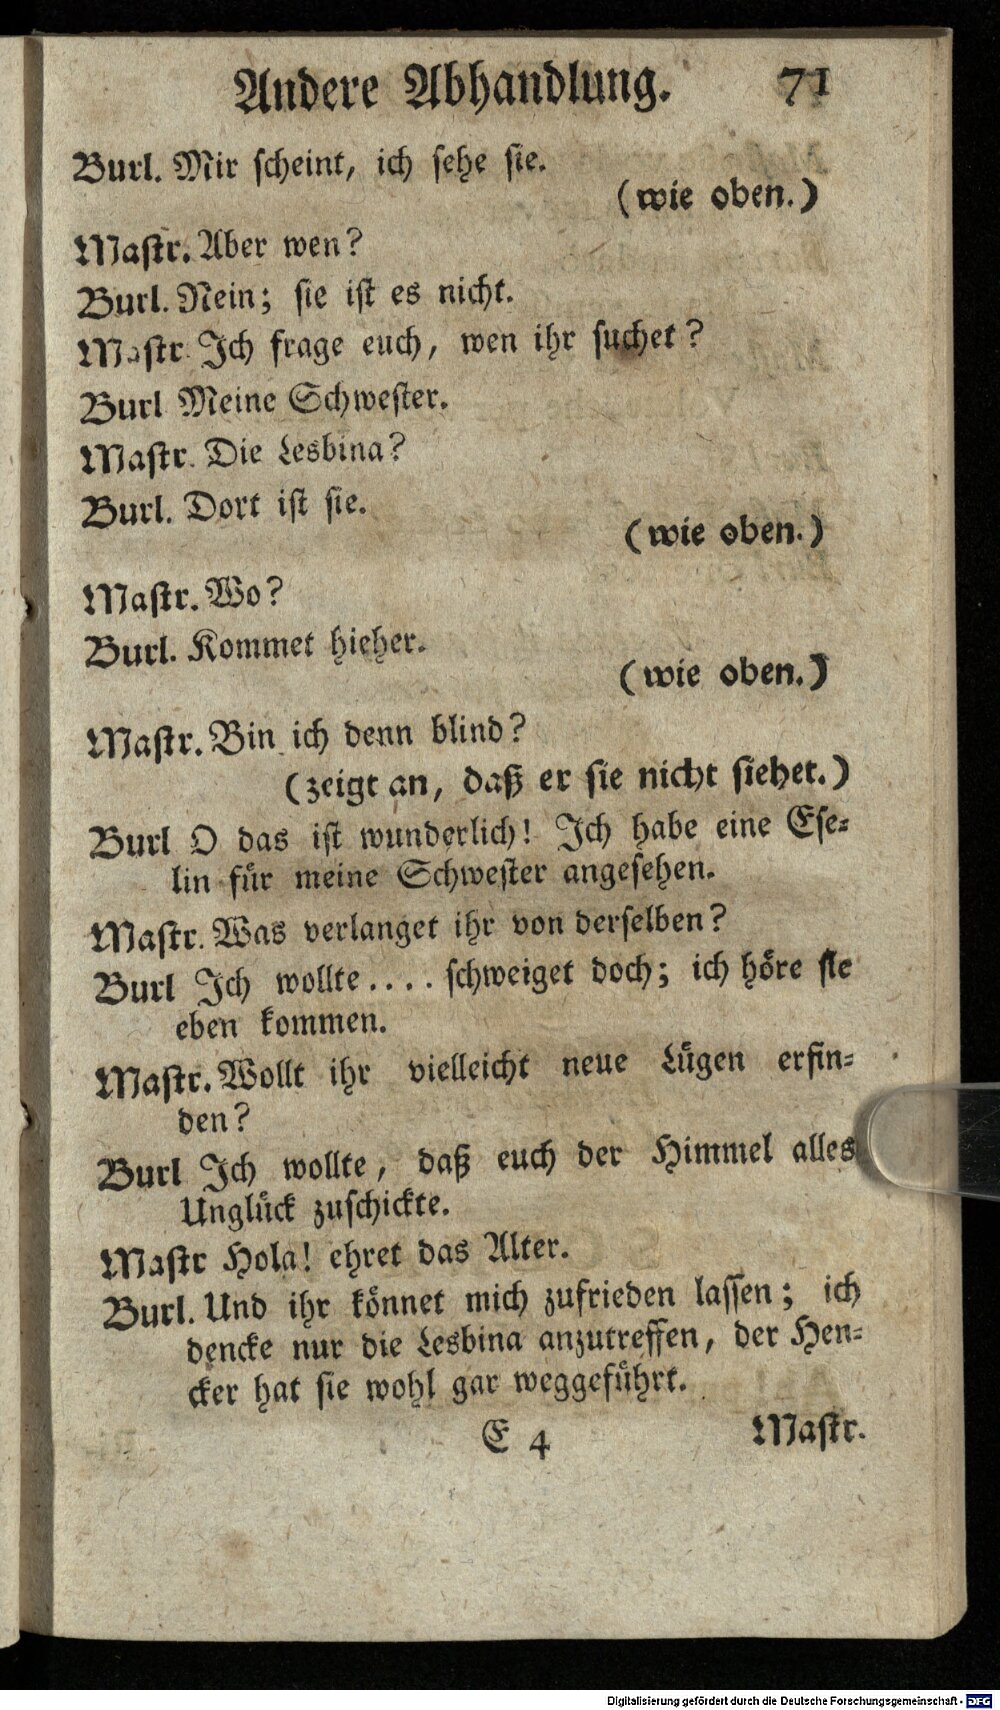 Andere Abhandlung. 71
Burl. Mir scheint, ich sehe sie.
(wie oben.)
Mastr. Aber wen?
Burl. Nein; sie ist es nicht.
Mastr Ich frage euch, wen ihr suchet?
Burl Meine Schwester.
Mastr. Die Lesbina?
Burl. Dort ist sie.
(wie oben.)
Mastr. Wo?
Burl. Kommet hieher.
(wie oben.)
Mastr. Bin ich denn blind?
(zeigt an, daß er sie nicht siehet.)
Burl O das ist wunderlich! Ich habe eine Ese-
lin für meine Schwester angesehen.
Mastr. Was verlanget ihr von derselben?
Burl Ich wollte.... schweiget doch; ich höre sie
eben kommen.
Mastr. Wollt ihr vielleicht neue Lügen erfin-
den?
Burl Ich wollte, daß euch der Himmel alles
Unglück zuschickte.
Mastr Hola! ehret das Alter.
Burl. Und ihr könnet mich zufrieden lassen; ich
dencke nur die Lesbina anzutreffen, der Hen-
cker hat sie wohl gar weggeführt.
E 4 Mastr.
Digitalisierung gefördert durch die Deutsche Forschungsgemeinschaft - DFG